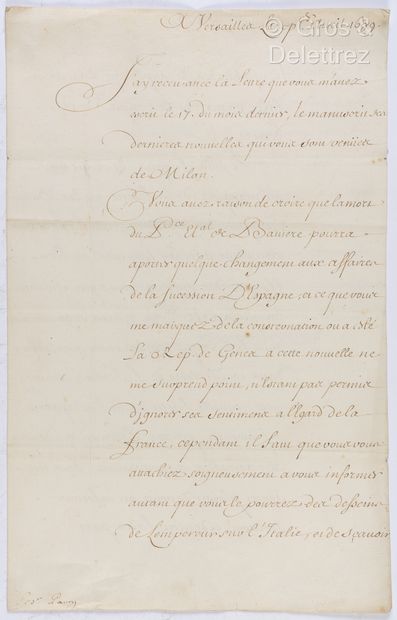 © Gros & Delettrez
A Versailles Le p.er Avril 1699.
J'ay receu avec la Lettre que vous m'avez
escrit le 17. du mois dernier, le manuscrit des
dernieres nouvelles qui vous sont venües
de Milan.
Vous avez raison de croire que la mort
du P.ce El.al de Baviere pourra
aporter quelque changement aux affaires
de la sucession D'Espagne, et ce que vous
me marquez de la consternation ou a esté
La Rep. de Genes a cette nouvelle ne
me surprend point, n'estant pas permis
d'ignorer ses sentimens a l'Egard de la
france, cependant il faut que vous vous
attachiez soigneusement a vous informer
autant que vous le pourrez des desseins
de L'empereur sur l'Italie, et de sçavoir